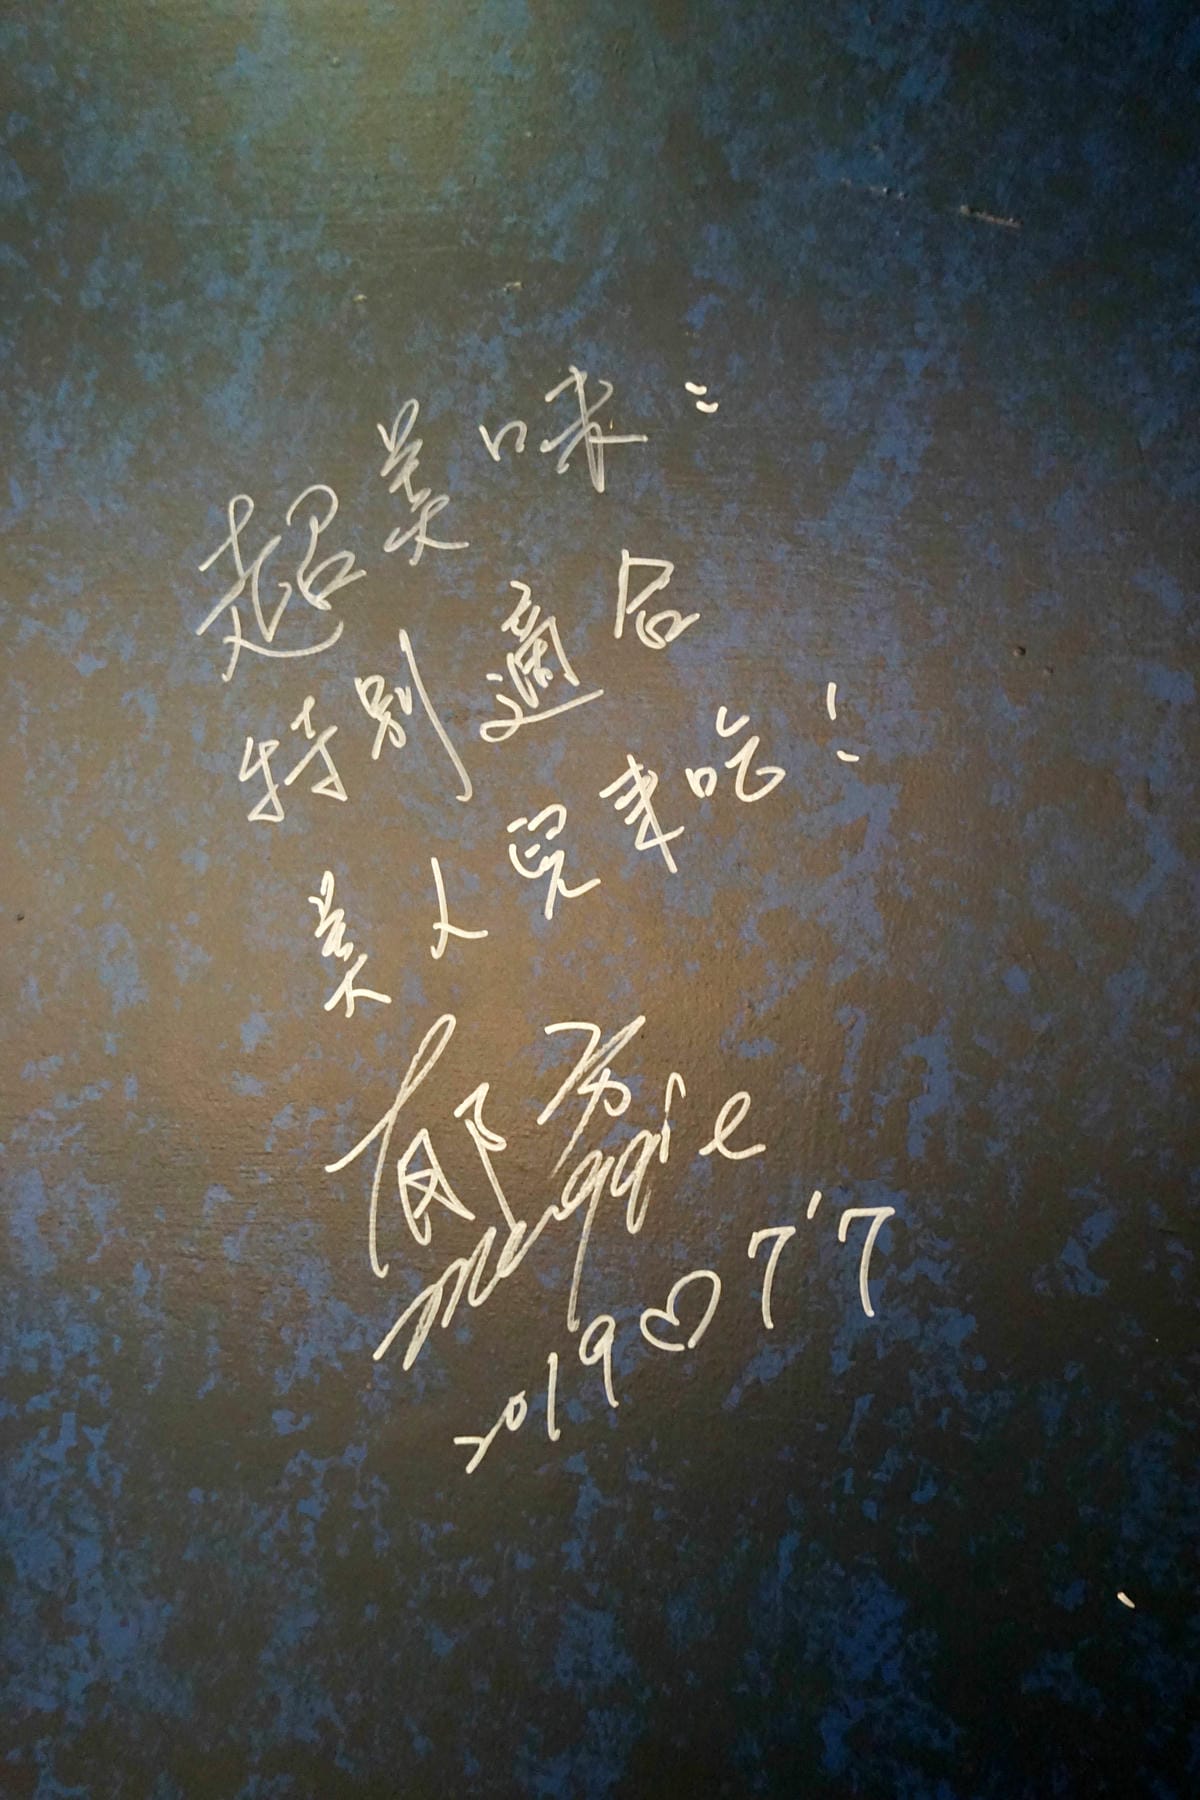 超美味！
特別適合
美人兒來吃！
郁方
maggie
2019♡7'7